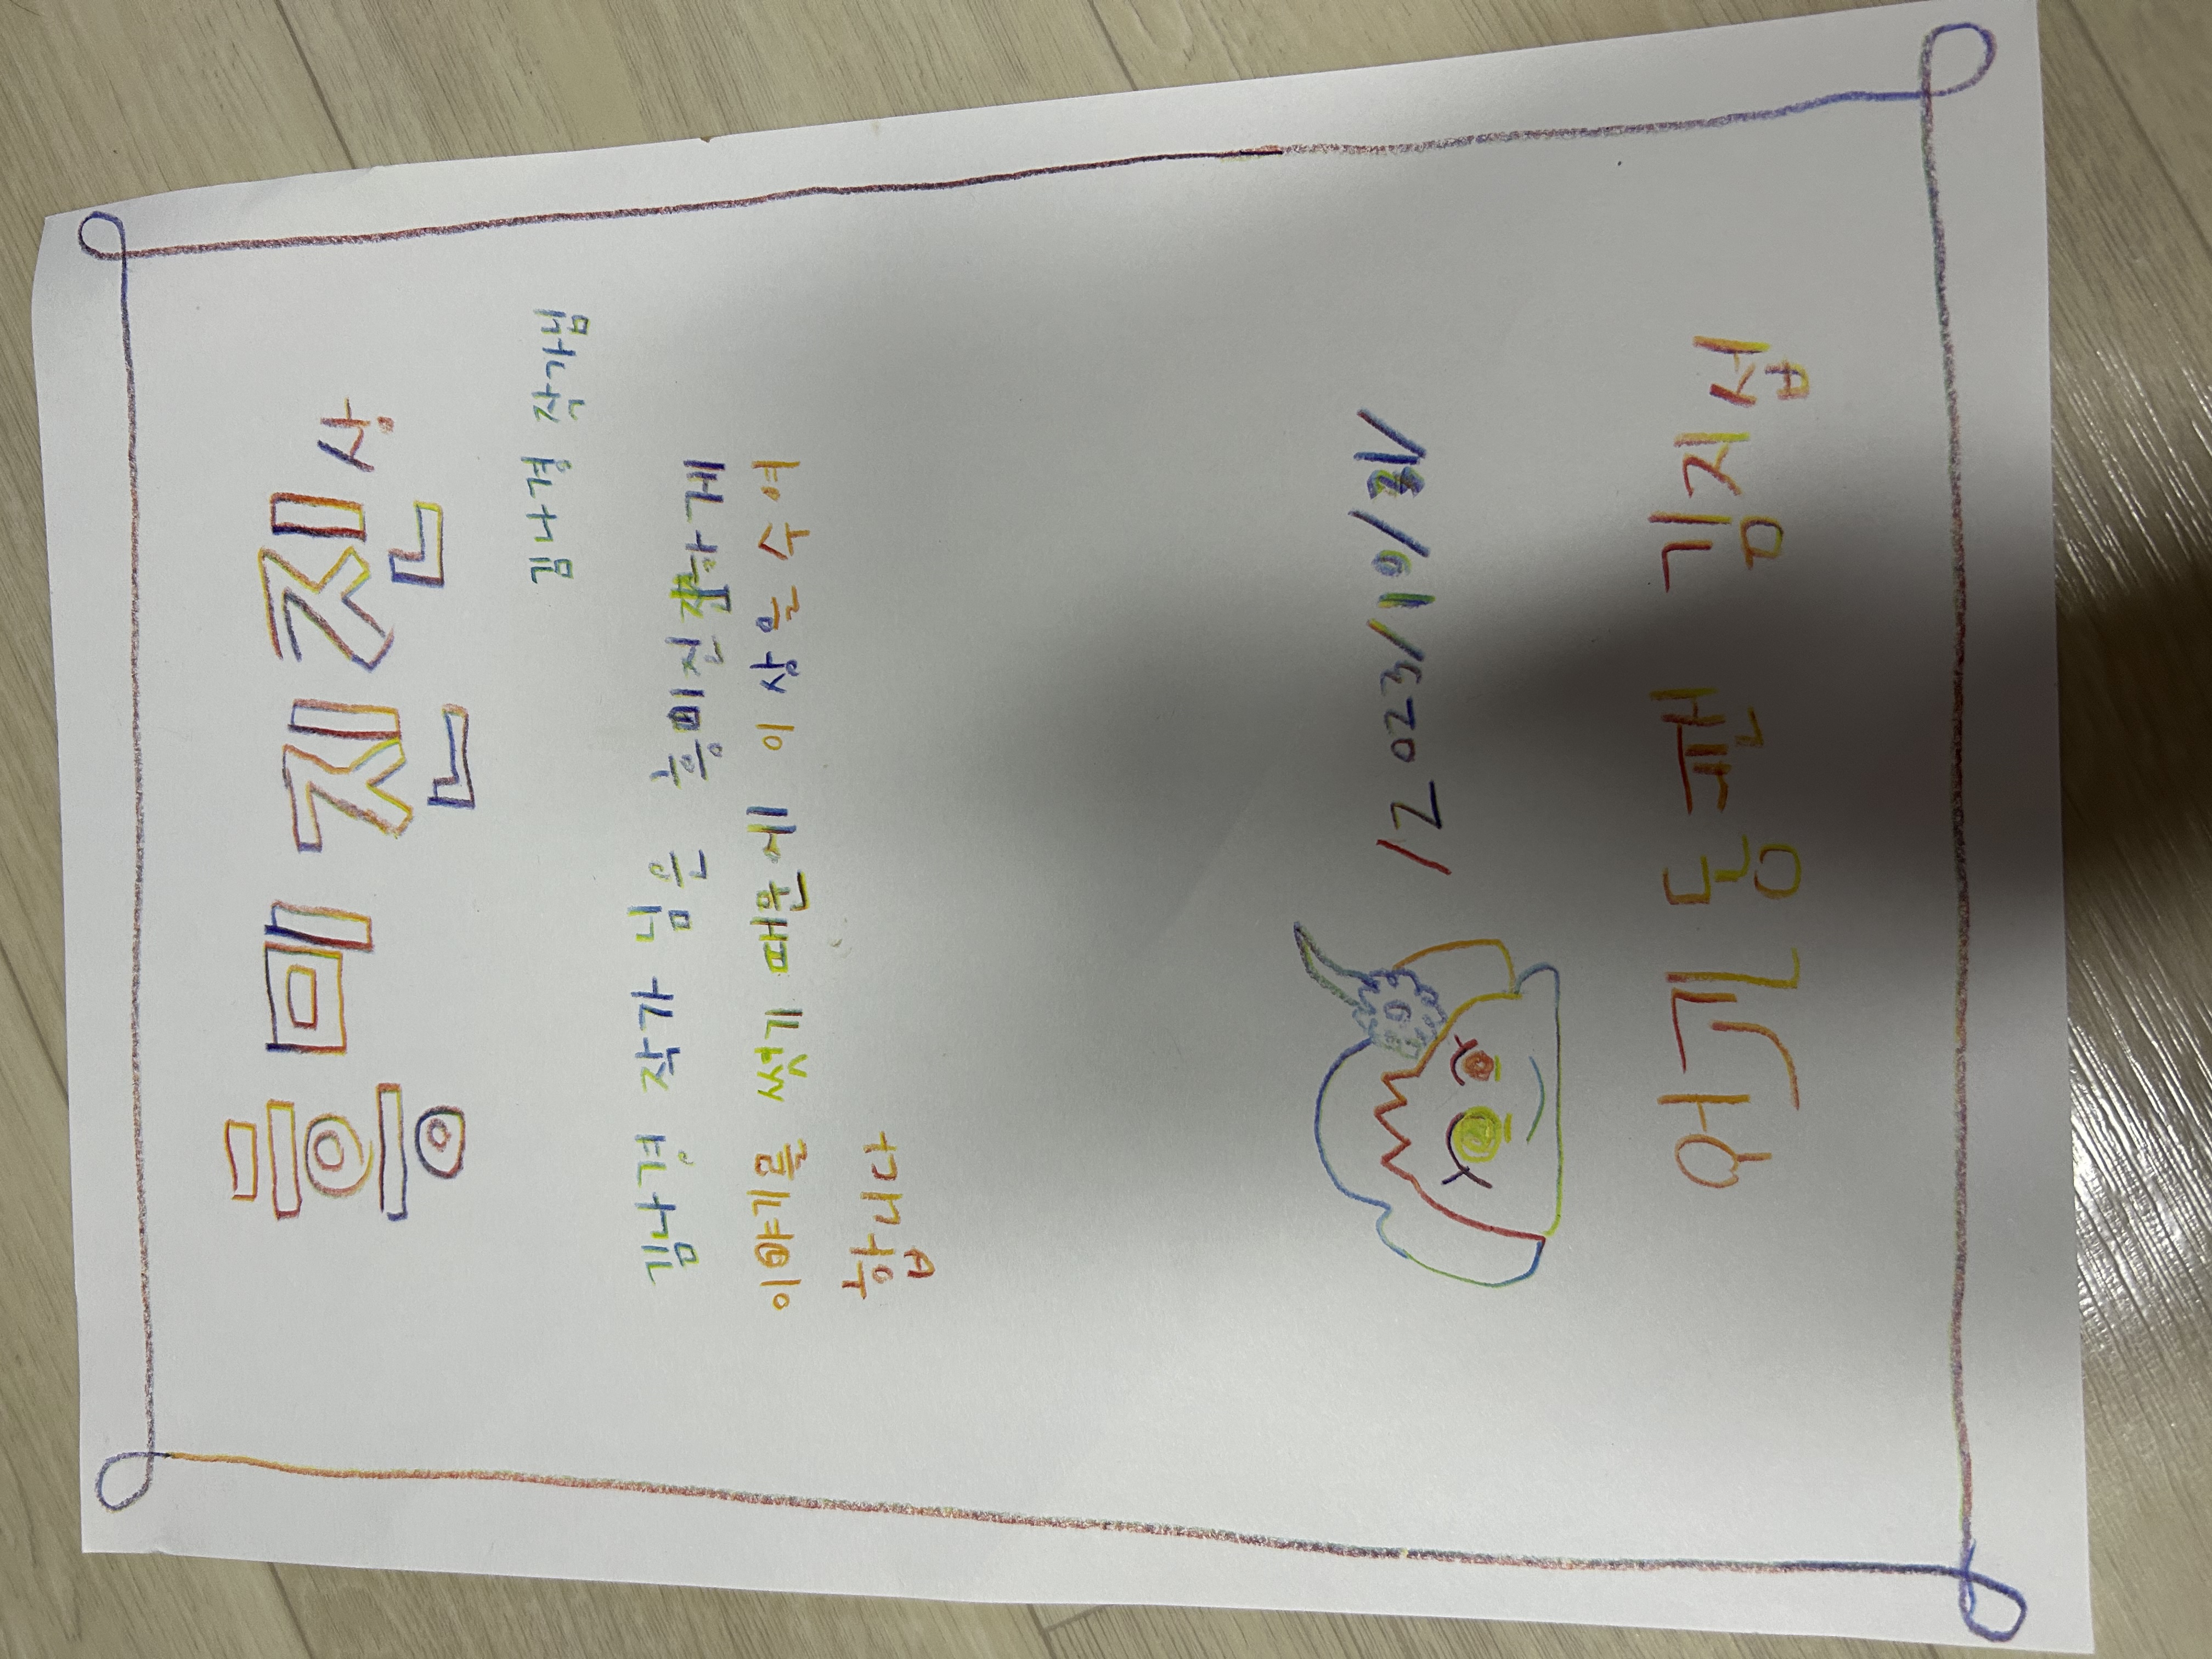 흥미진진상
김나경 작가님
김나경 작가 님은 흥미진진하게
이야기를 썼기 때문에 이 상을 수여
합니다
/2023/10/31/
동팬 김지섭